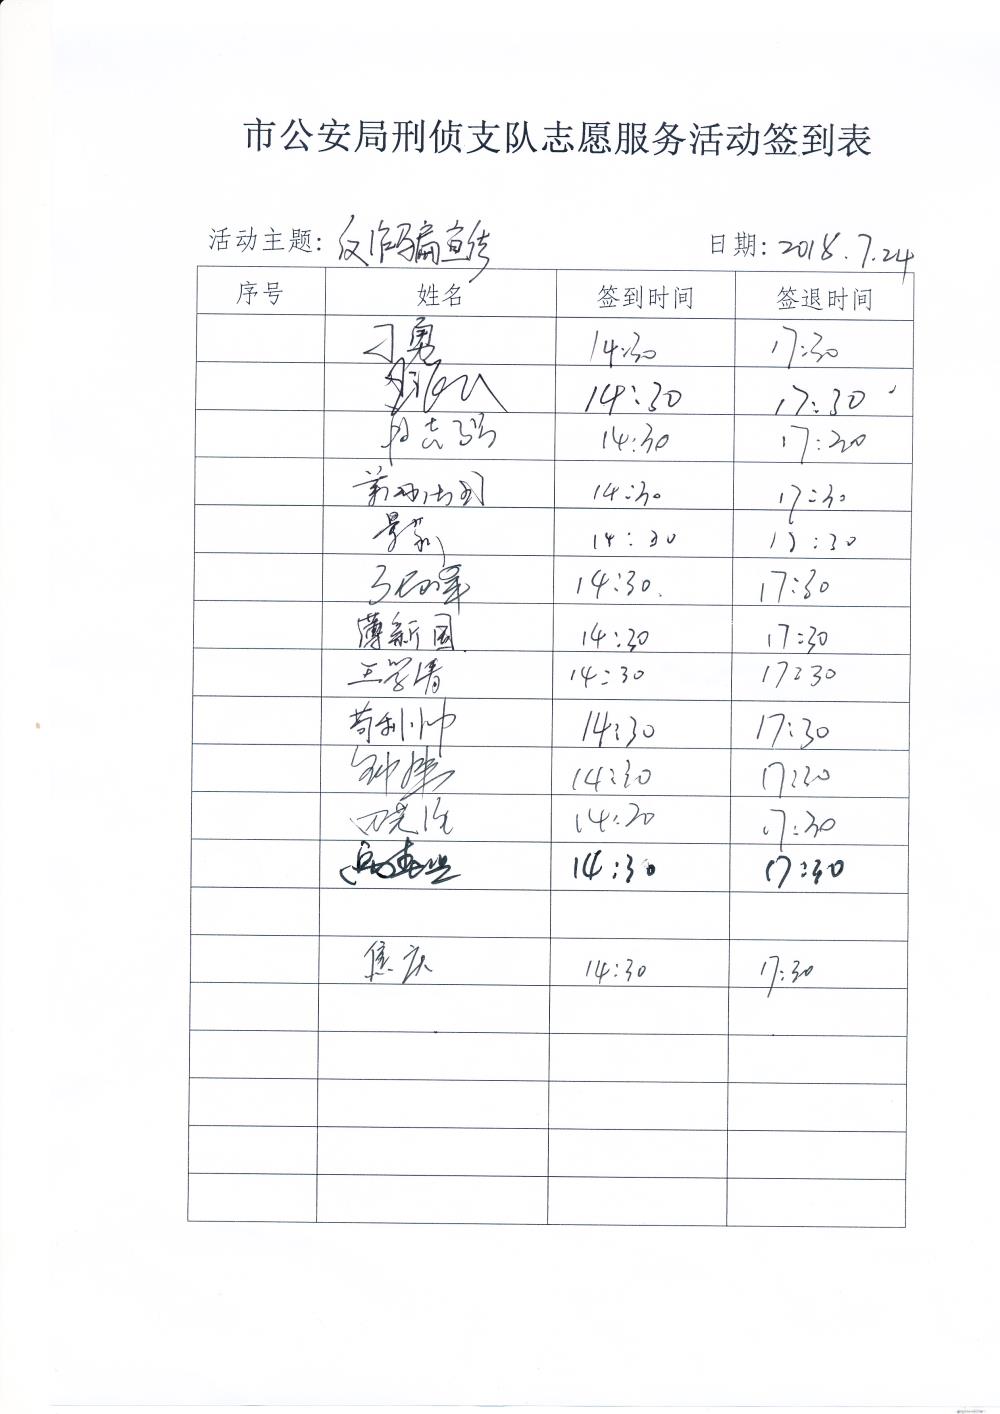 市公安局刑侦支队志愿服务活动签到表
活动主题: 反诈骗宣传 日期: 2018.7.24
序号 姓名 签到时间 签退时间
刁勇 14:30 17:30
14:30 17:30
志强 14:30 17:30
14:30 17:30
景 14:30 17:30
14:30. 17:30
薄新国 14:30 17:30
王学清 14:30 17:30
苟利帅 14:30 17:30
14:30 17:30
14:30 17:30
14:30 17:30
焦庆 14:30 17:30